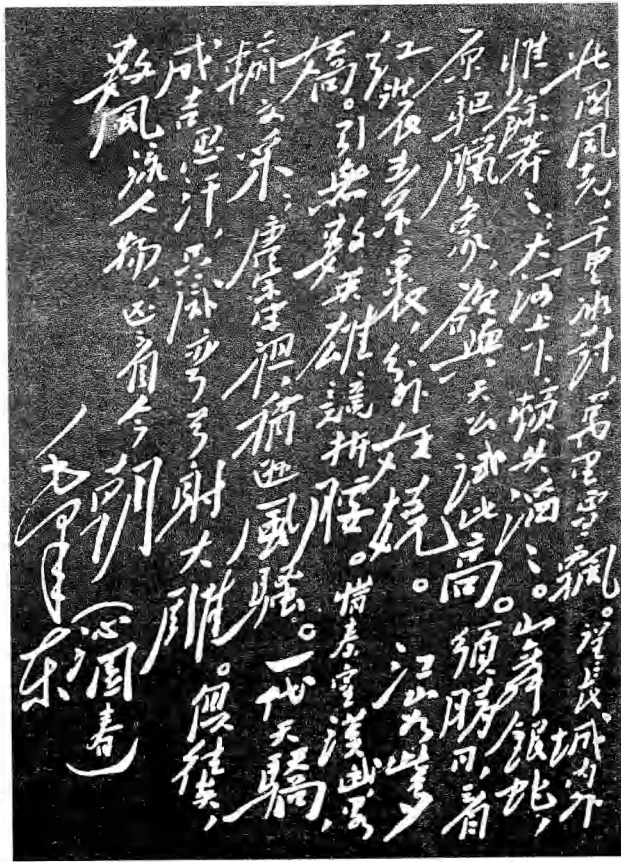 北國風光,千里冰封,萬里雪飄。望長城內外
惟餘莽々;大河上下,頓失滔々。山舞銀蛇,
原馳臘象,欲與天公試比高。須晴日,看
紅裝素裹,分外妖嬈。江山如此多
嬌。引無數英雄競折腰。惜秦皇漢武,略
輸文采;唐宗宋祖,稍遜風騷。一代天驕,
成吉思汗,只識彎弓射大雕。俱往矣,
數風流人物,还看今朝
(沁園春)
毛澤东